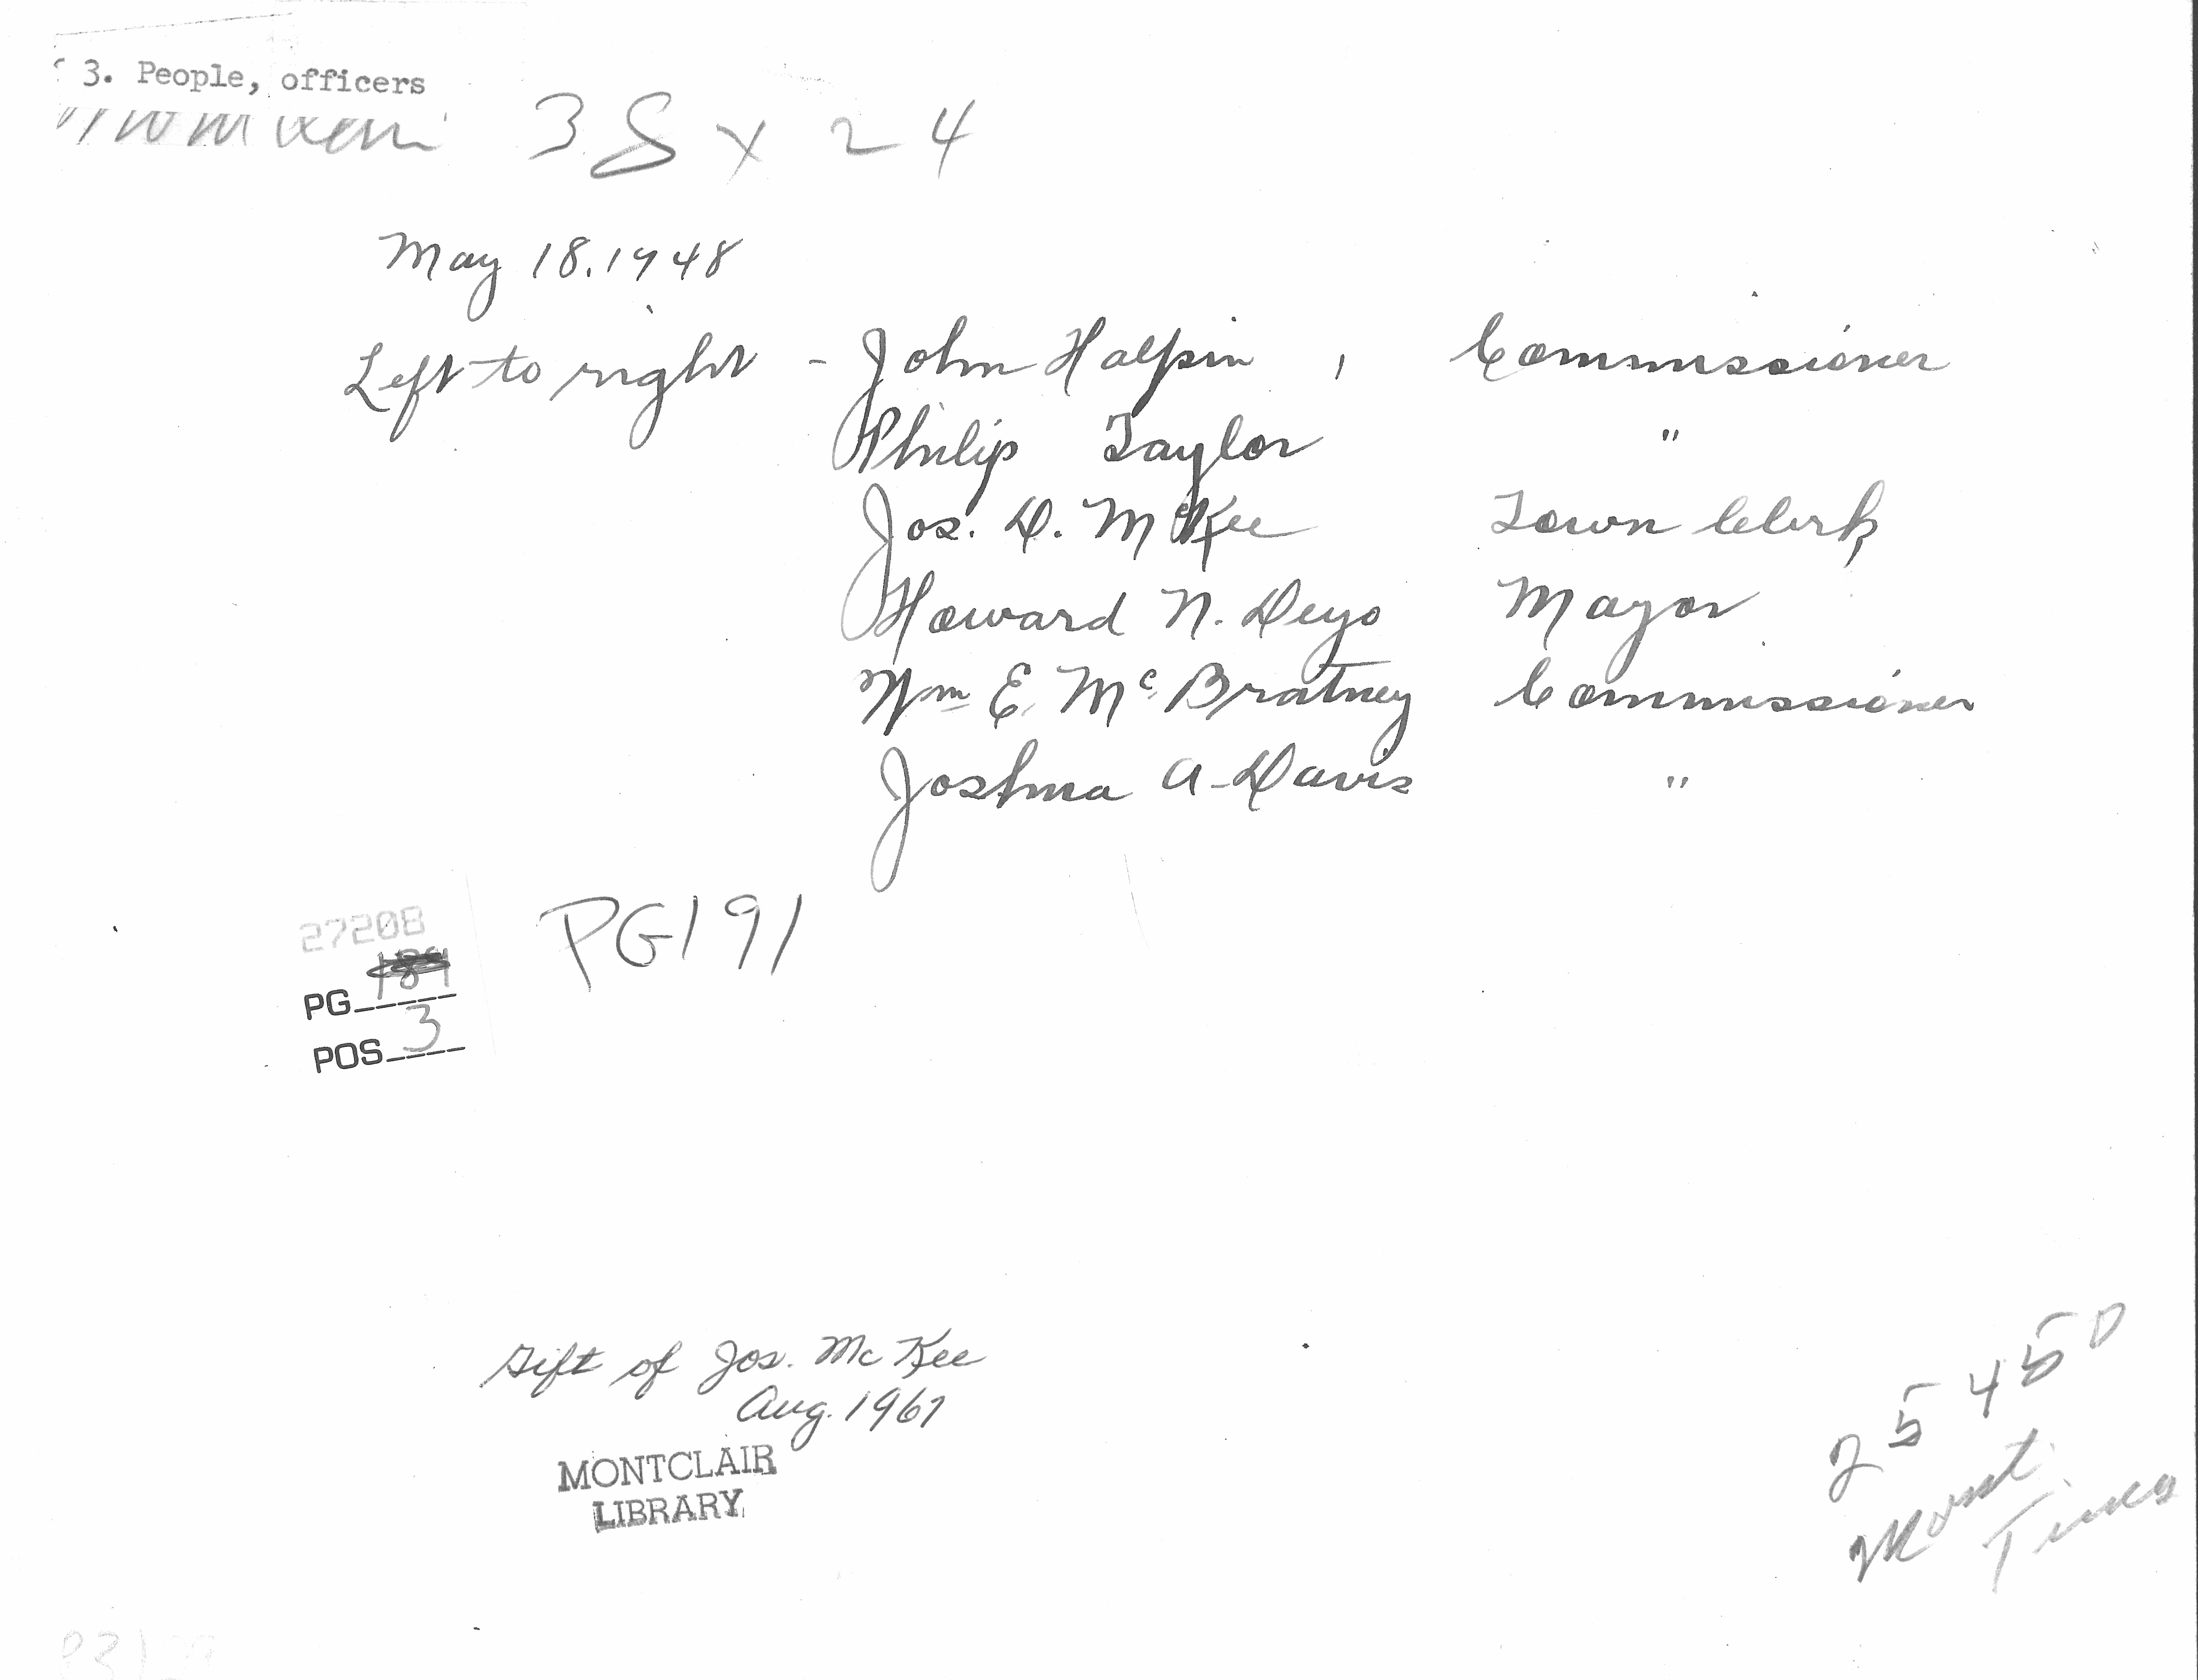 3. People, officers
38 x 24
May 18. 1948
Left to right - John Halpin , Commissioner
Philip Taylor "
Jos. D. McKee Town Clerk
Howard N. Deyo Mayor
Wm E. McBratney Commissioner
Joshua A. Davis "
27208
PG 191
PG
POS 3
Gift of Jos. McKee
Aug. 1961
MONTCLAIR
LIBRARY
25450
Mont
Times